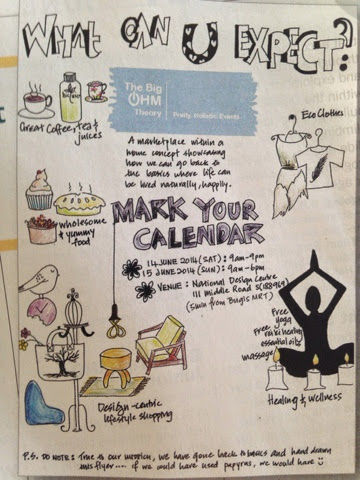 WHAT CAN U EXPECT?
The Big
OHM
Theory
Pretty. Holistic. Events
Great Coffee, tea &
juices
Eco Clothes
A marketplace within a
home concept showcasing
how we can go back to
the basics where life can
be lived naturally, happily.
wholesome
& yummy
food
MARK YOUR
CALENDAR
14 JUNE 2014 (SAT) : 9am-9pm
15 JUNE 2014 (SUN) : 9am-6pm
VENUE : National Design Centre
111 Middle Road S(188969)
(5min from Bugis MRT)
Free
yoga
Free reiki healing
essential oils
massage
Design-centric
lifestyle shopping
Healing & Wellness
P.S. DO NOTE : True to our mission, we have gone back to basics and hand drawn
this flyer.... if we could have used papyrus, we would have